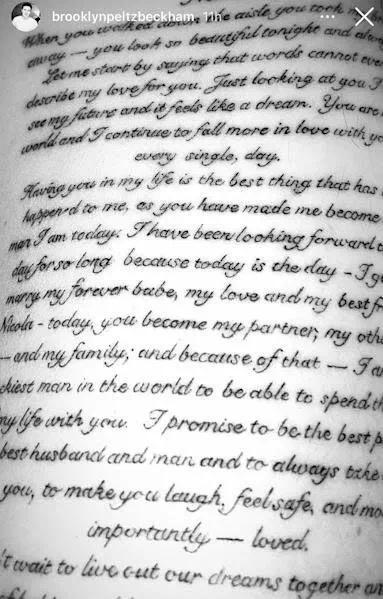 brooklynpeltzbeckham 11h
When you walked down the aisle you took
away — you look so beautiful tonight and
Let me start by saying that words cannot
describe my love for you. Just looking at you I
see my future and it feels like a dream. You are
world and I continue to fall more in love with
every single, day.
Having you in my life is the best thing that has
happen'd to me, as you have made me become
man I am today. I have been looking forward
day for so long because today is the day – I
marry my forever babe, my love and my best
Nicola - today, you become my partner, my
— and my family; and because of that — I
man in the world to be able to spend
my life with you. I promise to be the best
best husband and man and to always take
you, to make you laugh, feel safe, and
importantly — loved.
't wait to live out our dreams together